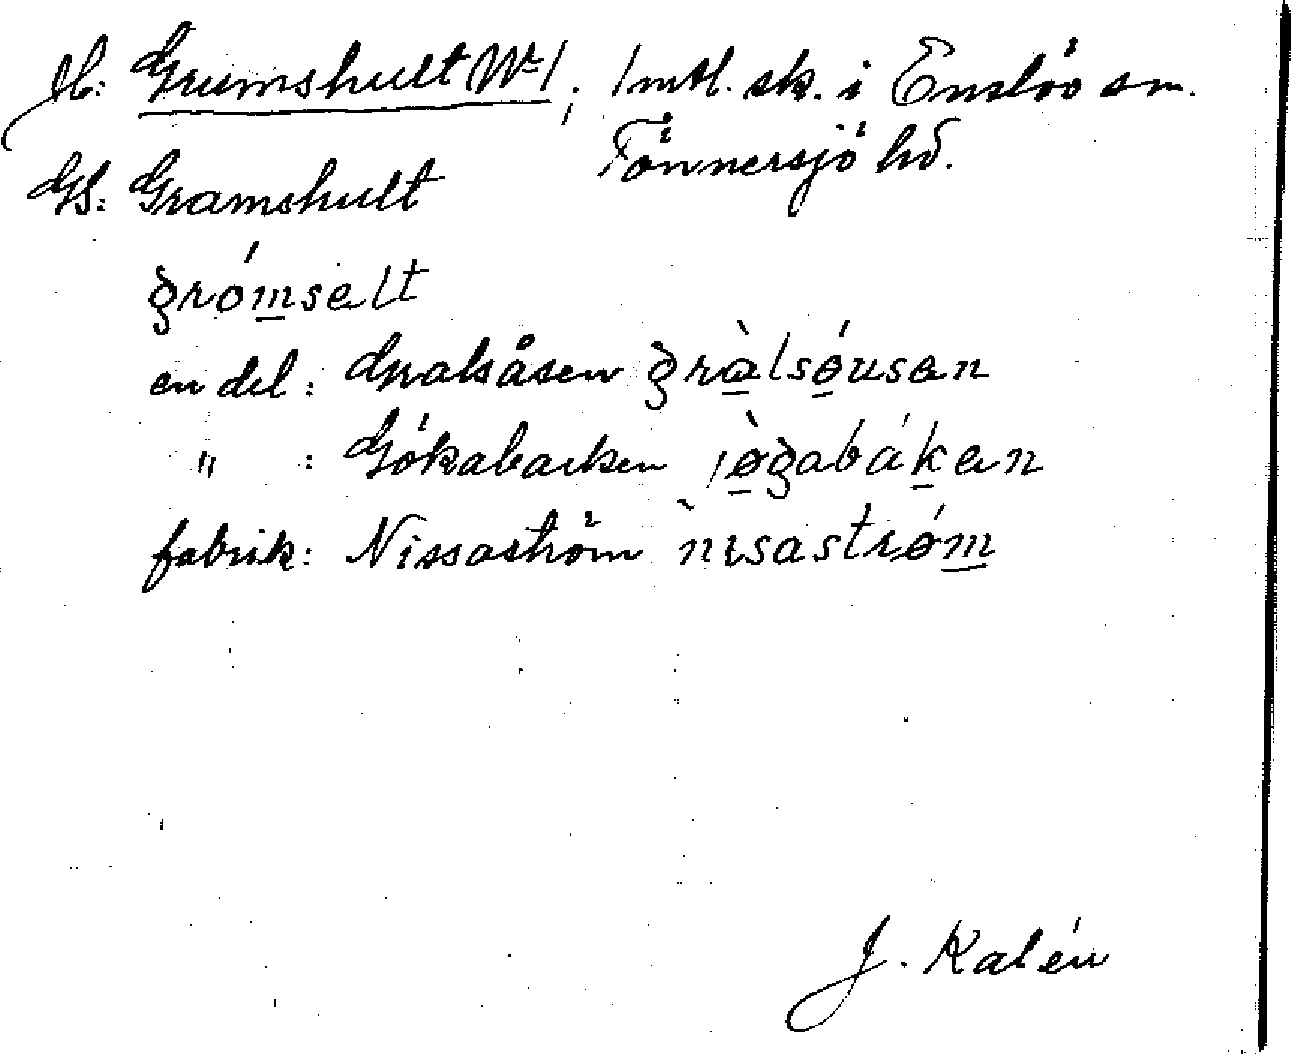 H: Grumshult Nº 1; 1 mtl. sk. i Enslöv sn.
Tönnersjö hd.
GS: Gramshult
grómsalt
en del: Gralsåsen gràlsóusan
" : Gökabacken jøgabákan
fabrik: Nissaström nisastrøm
J. Kalén